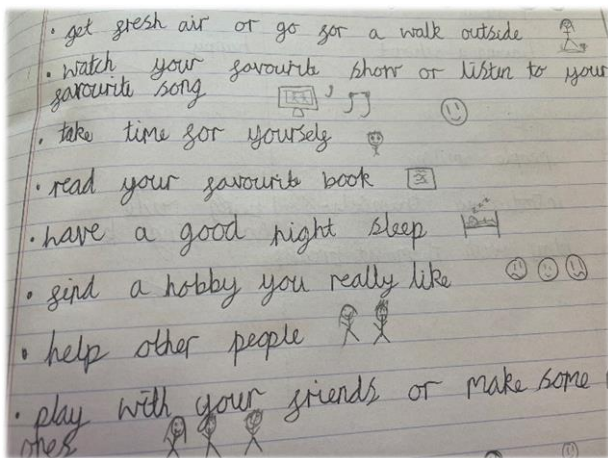 • get fresh air or go for a walk outside
• watch your favourite show or listen to your
favourite song
• take time for yourself
• read your favourite book
• have a good night sleep
• find a hobby you really like
• help other people
• play with your friends or make some
ones